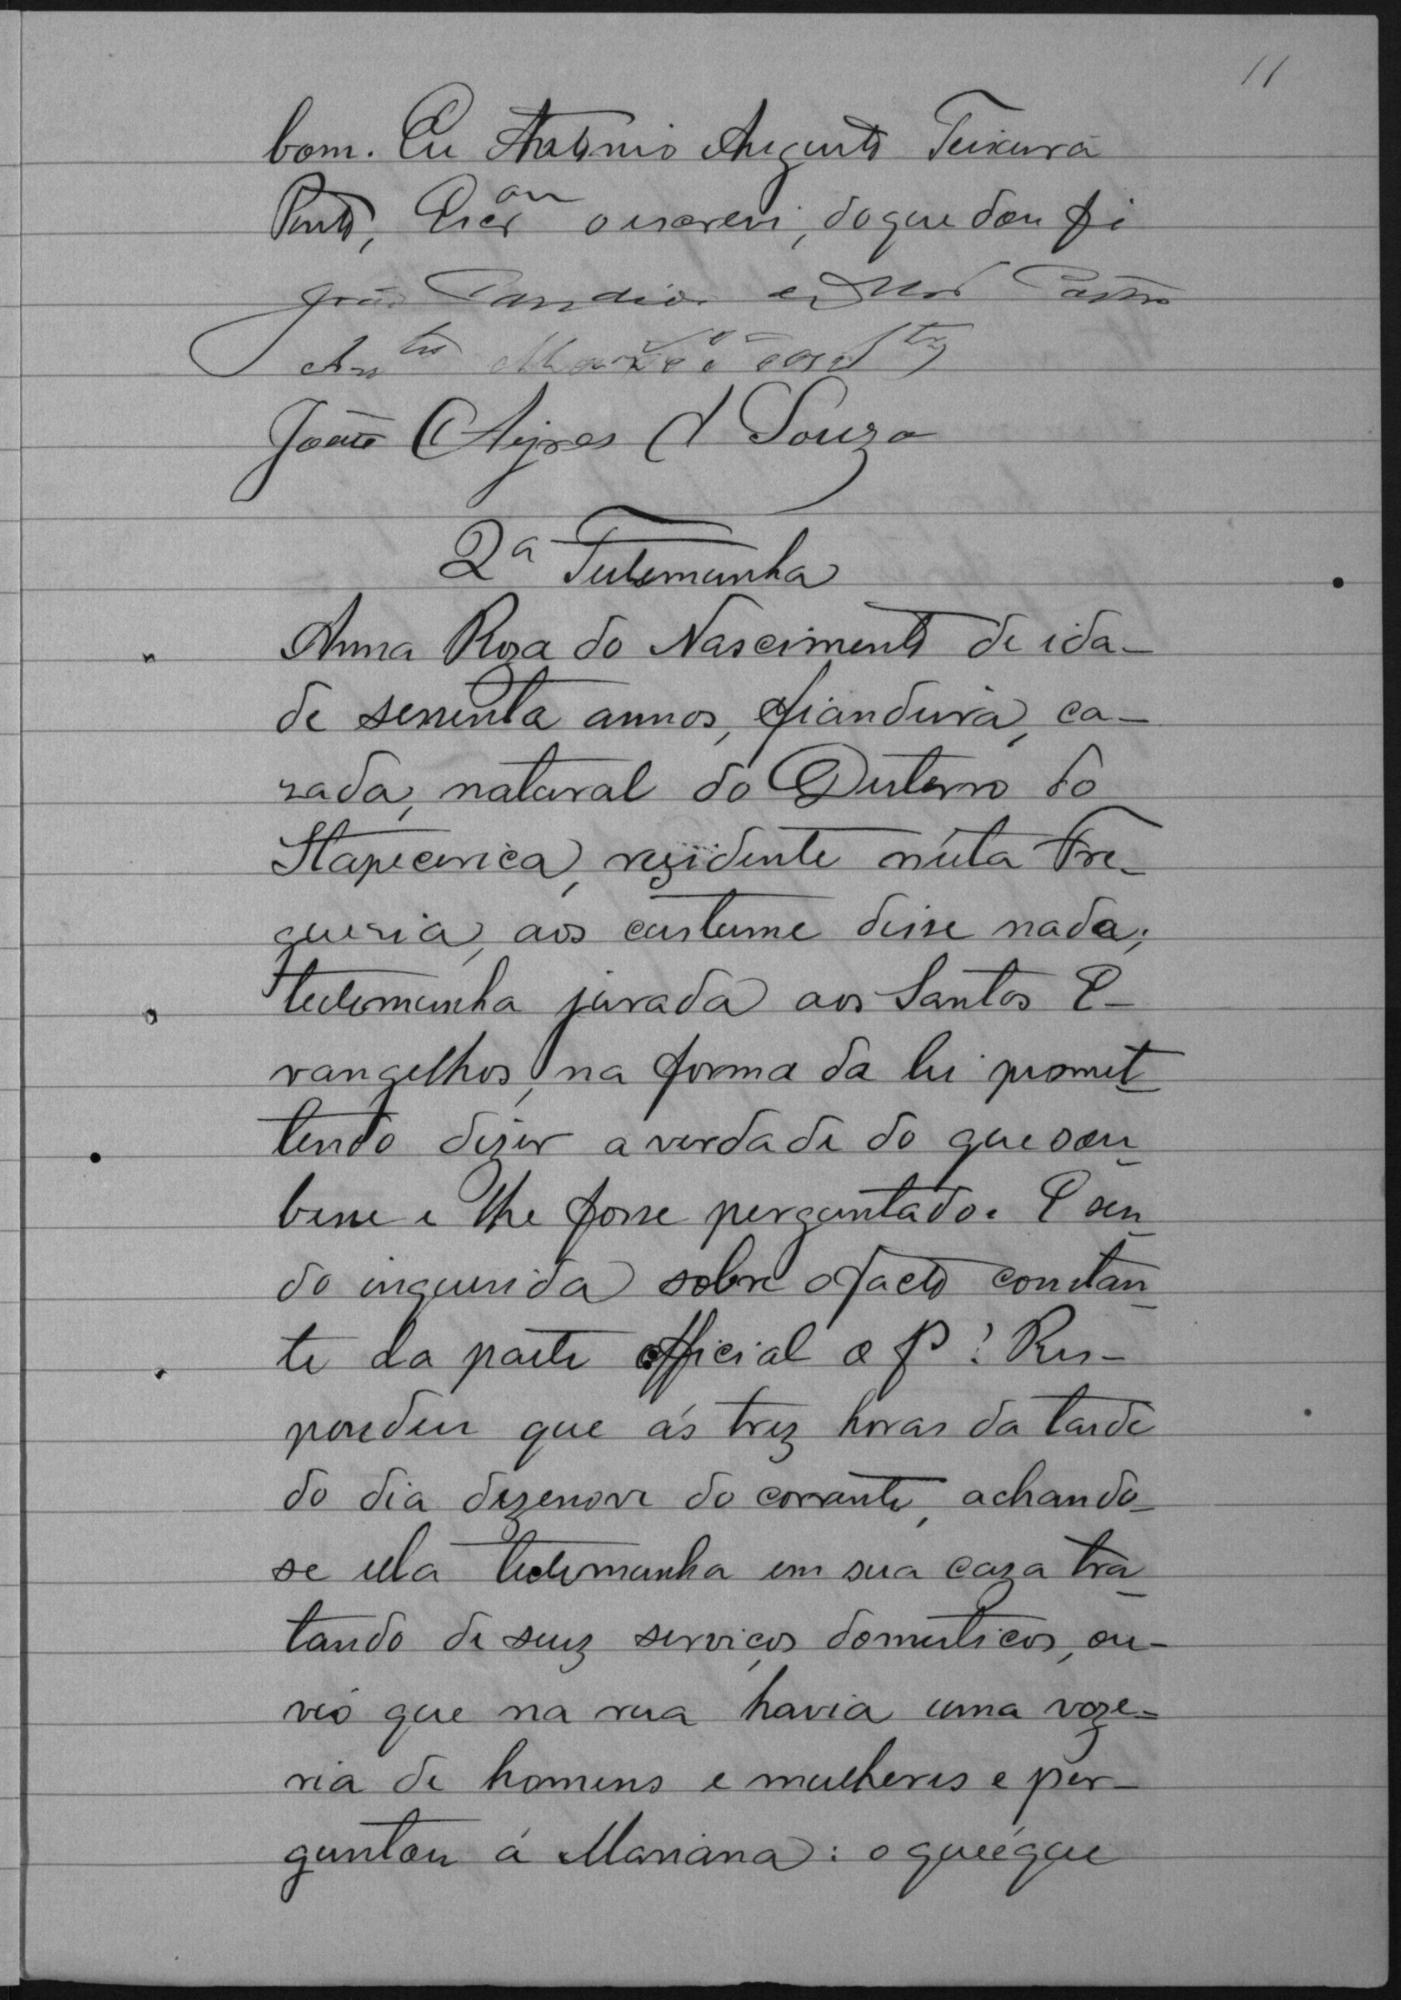 11
bom. Eu Antonio Augusto Teixeira
Pinto, Escr.am o escrevi, do que dou fé
João Candido de Castro
Antº
João Ayres d Souza
2ª Testemunha
Anna Roza do Nascimento de ida-
de sessenta annos, fiandeira, ca-
zada, natural do Desterro do
Itapecerica, rezidente n'esta Fre-
guesia, aos custume disse nada;
testemunha jurada aos Santos E-
vangelhos, na forma da lei promet-
tendo dizer a verdade do que sou-
besse e lhe fosse perguntado. E sen-
do inquerida sobre o facto constan-
te da parte official a f? Res-
pondeu que ás trez horas da tarde
do dia dezenove do corrente, achando-
se ella testemunha em sua caza tra-
tando de seus serviços domesticos, ou-
vio que na rua havia uma voze-
ria de homens e mulheres e per-
guntou á Mariana: o que é que